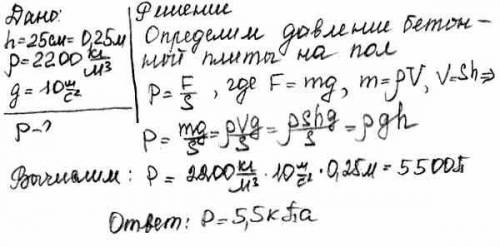 Дано:
h=25см=0,25м
ρ=2200 кг/м³
g=10 м/с²
p-?
Решение
Определим давление бетон-
ной плиты на пол
p = F/S, где F=mg, m=ρV, V=Sh⇒
p = mg/S = ρVg/S = ρShg/S = ρgh
Вычислим: p = 2200 кг/м³ · 10 м/с² · 0,25м = 5500Па
Ответ: p=5,5кПа